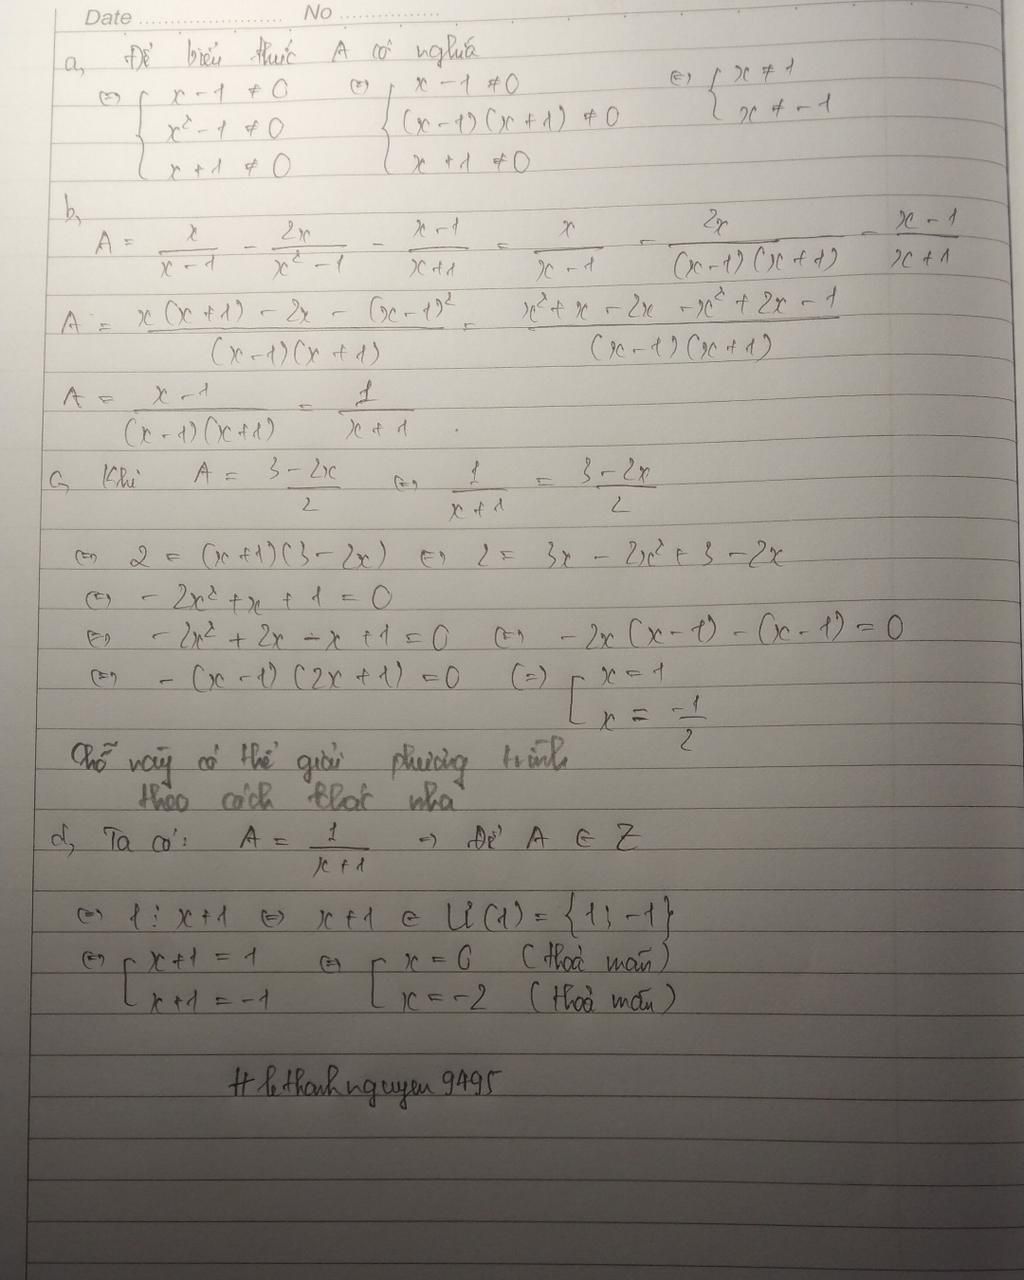 Date ........................ No ................
a, Để biểu thức A có nghĩa
⇔ { x - 1 ≠ 0 ⇔ { x - 1 ≠ 0 ⇔ { x ≠ 1
x² - 1 ≠ 0 (x-1)(x+1) ≠ 0 x ≠ -1
x + 1 ≠ 0 x + 1 ≠ 0
b,
A = x/(x-1) - 2x/(x²-1) - (x-1)/(x+1) = x/(x-1) - 2x/((x-1)(x+1)) - (x-1)/(x+1)
A = (x(x+1) - 2x - (x-1)²)/((x-1)(x+1)) = (x² + x - 2x - x² + 2x - 1)/((x-1)(x+1))
A = (x-1)/((x-1)(x+1)) = 1/(x+1) .
c, Khi A = (3-2x)/2 ⇔ 1/(x+1) = (3-2x)/2
⇔ 2 = (x+1)(3-2x) ⇔ 2 = 3x - 2x² + 3 - 2x
⇔ - 2x² + x + 1 = 0
⇔ - 2x² + 2x - x + 1 = 0 ⇔ - 2x(x-1) - (x-1) = 0
⇔ - (x-1)(2x+1) = 0 (=) [ x = 1
x = -1/2
Chỗ này có thể giải phương trình
theo cách khác nha
d, Ta có: A = 1/(x+1) ⇒ Để A ∈ Z
⇔ 1 ⋮ x+1 ⇔ x+1 ∈ Ư(1) = {1; -1}
⇔ [ x+1 = 1 ⇔ [ x = 0 (thoả mãn)
x+1 = -1 x = -2 (thoả mãn)
#lethanhnguyen9495